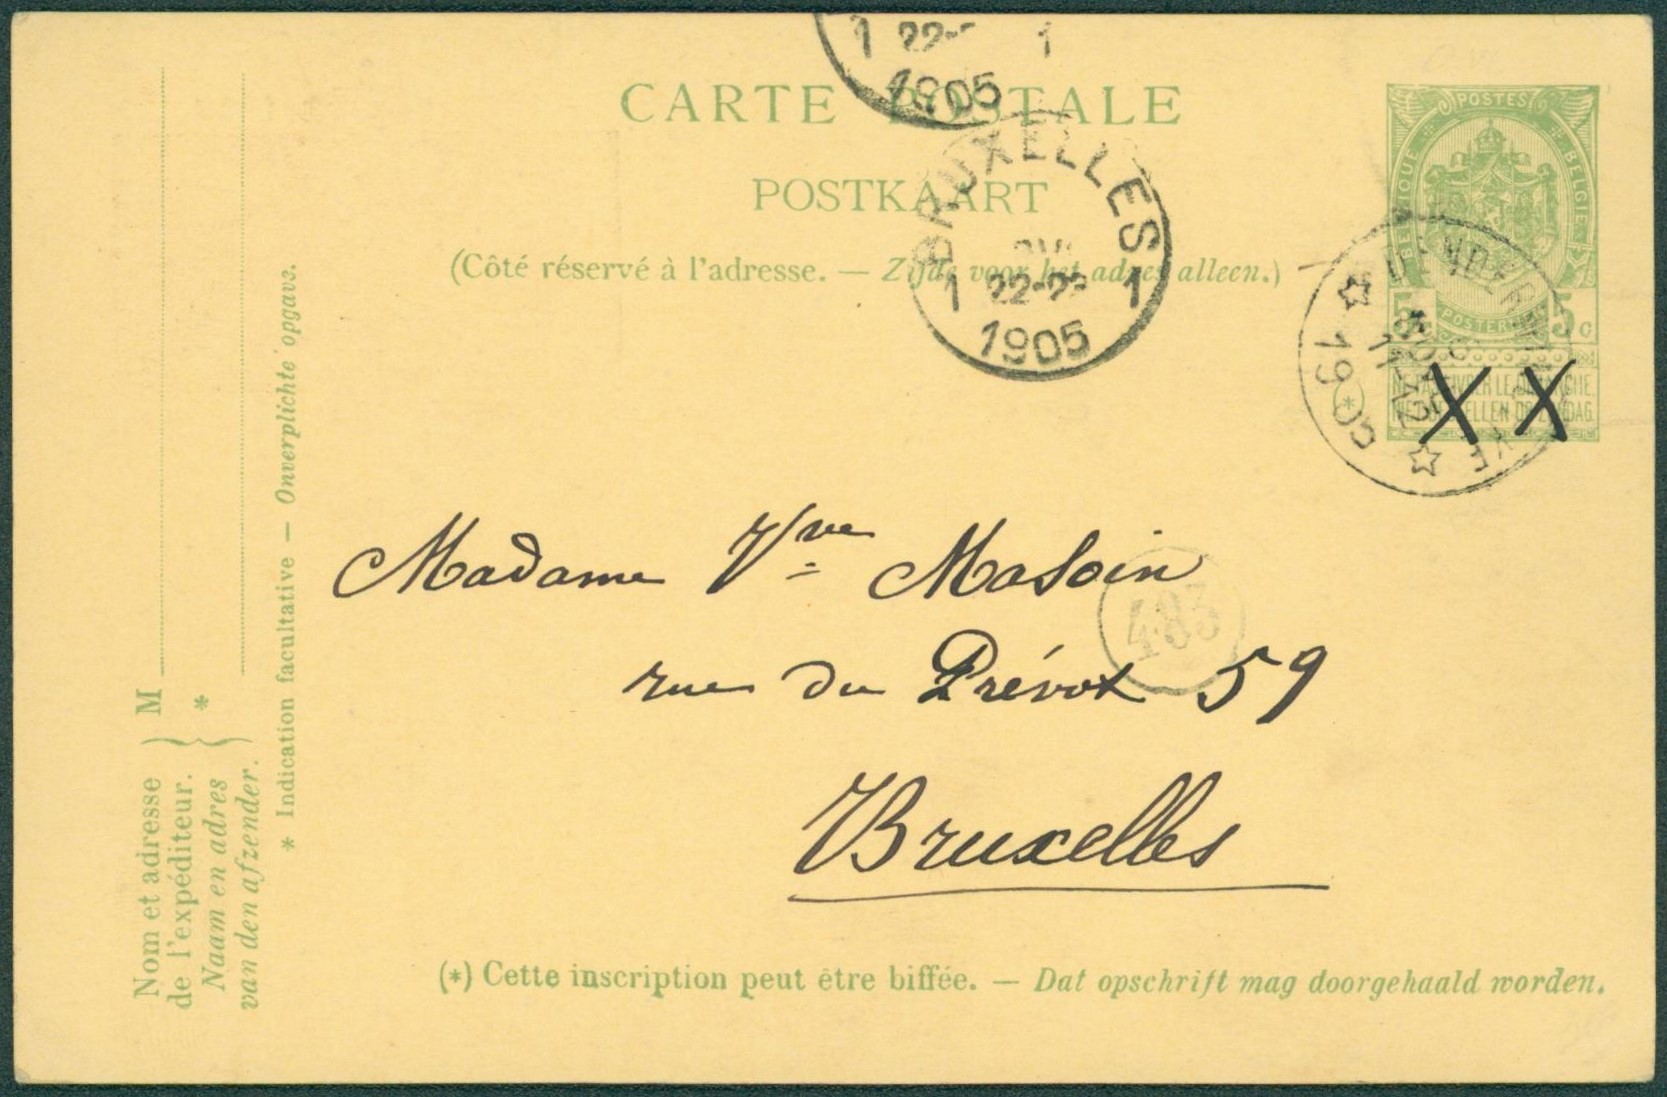 1 22- 1
1905
CARTE POSTALE
POSTKAART
(Côté réservé à l'adresse. — Zijde voor het adres alleen.)
BRUXELLES
1 22-23 1
1905
POSTES
BELGIQUE
BELGIË
POSTERIJEN
5c 5c
NE PAS LIVRER LE DIMANCHE.
NIET BESTELLEN OP ZONDAG.
X X
11-12
1905
Madame Vve Masoin
483
rue du Prévot 59
Bruxelles
(*) Cette inscription peut être biffée. — Dat opschrift mag doorgehaald worden.
Nom et adresse
de l'expéditeur.
Naam en adres
van den afzender.
M
*
* Indication facultative — Onverplichte opgave.